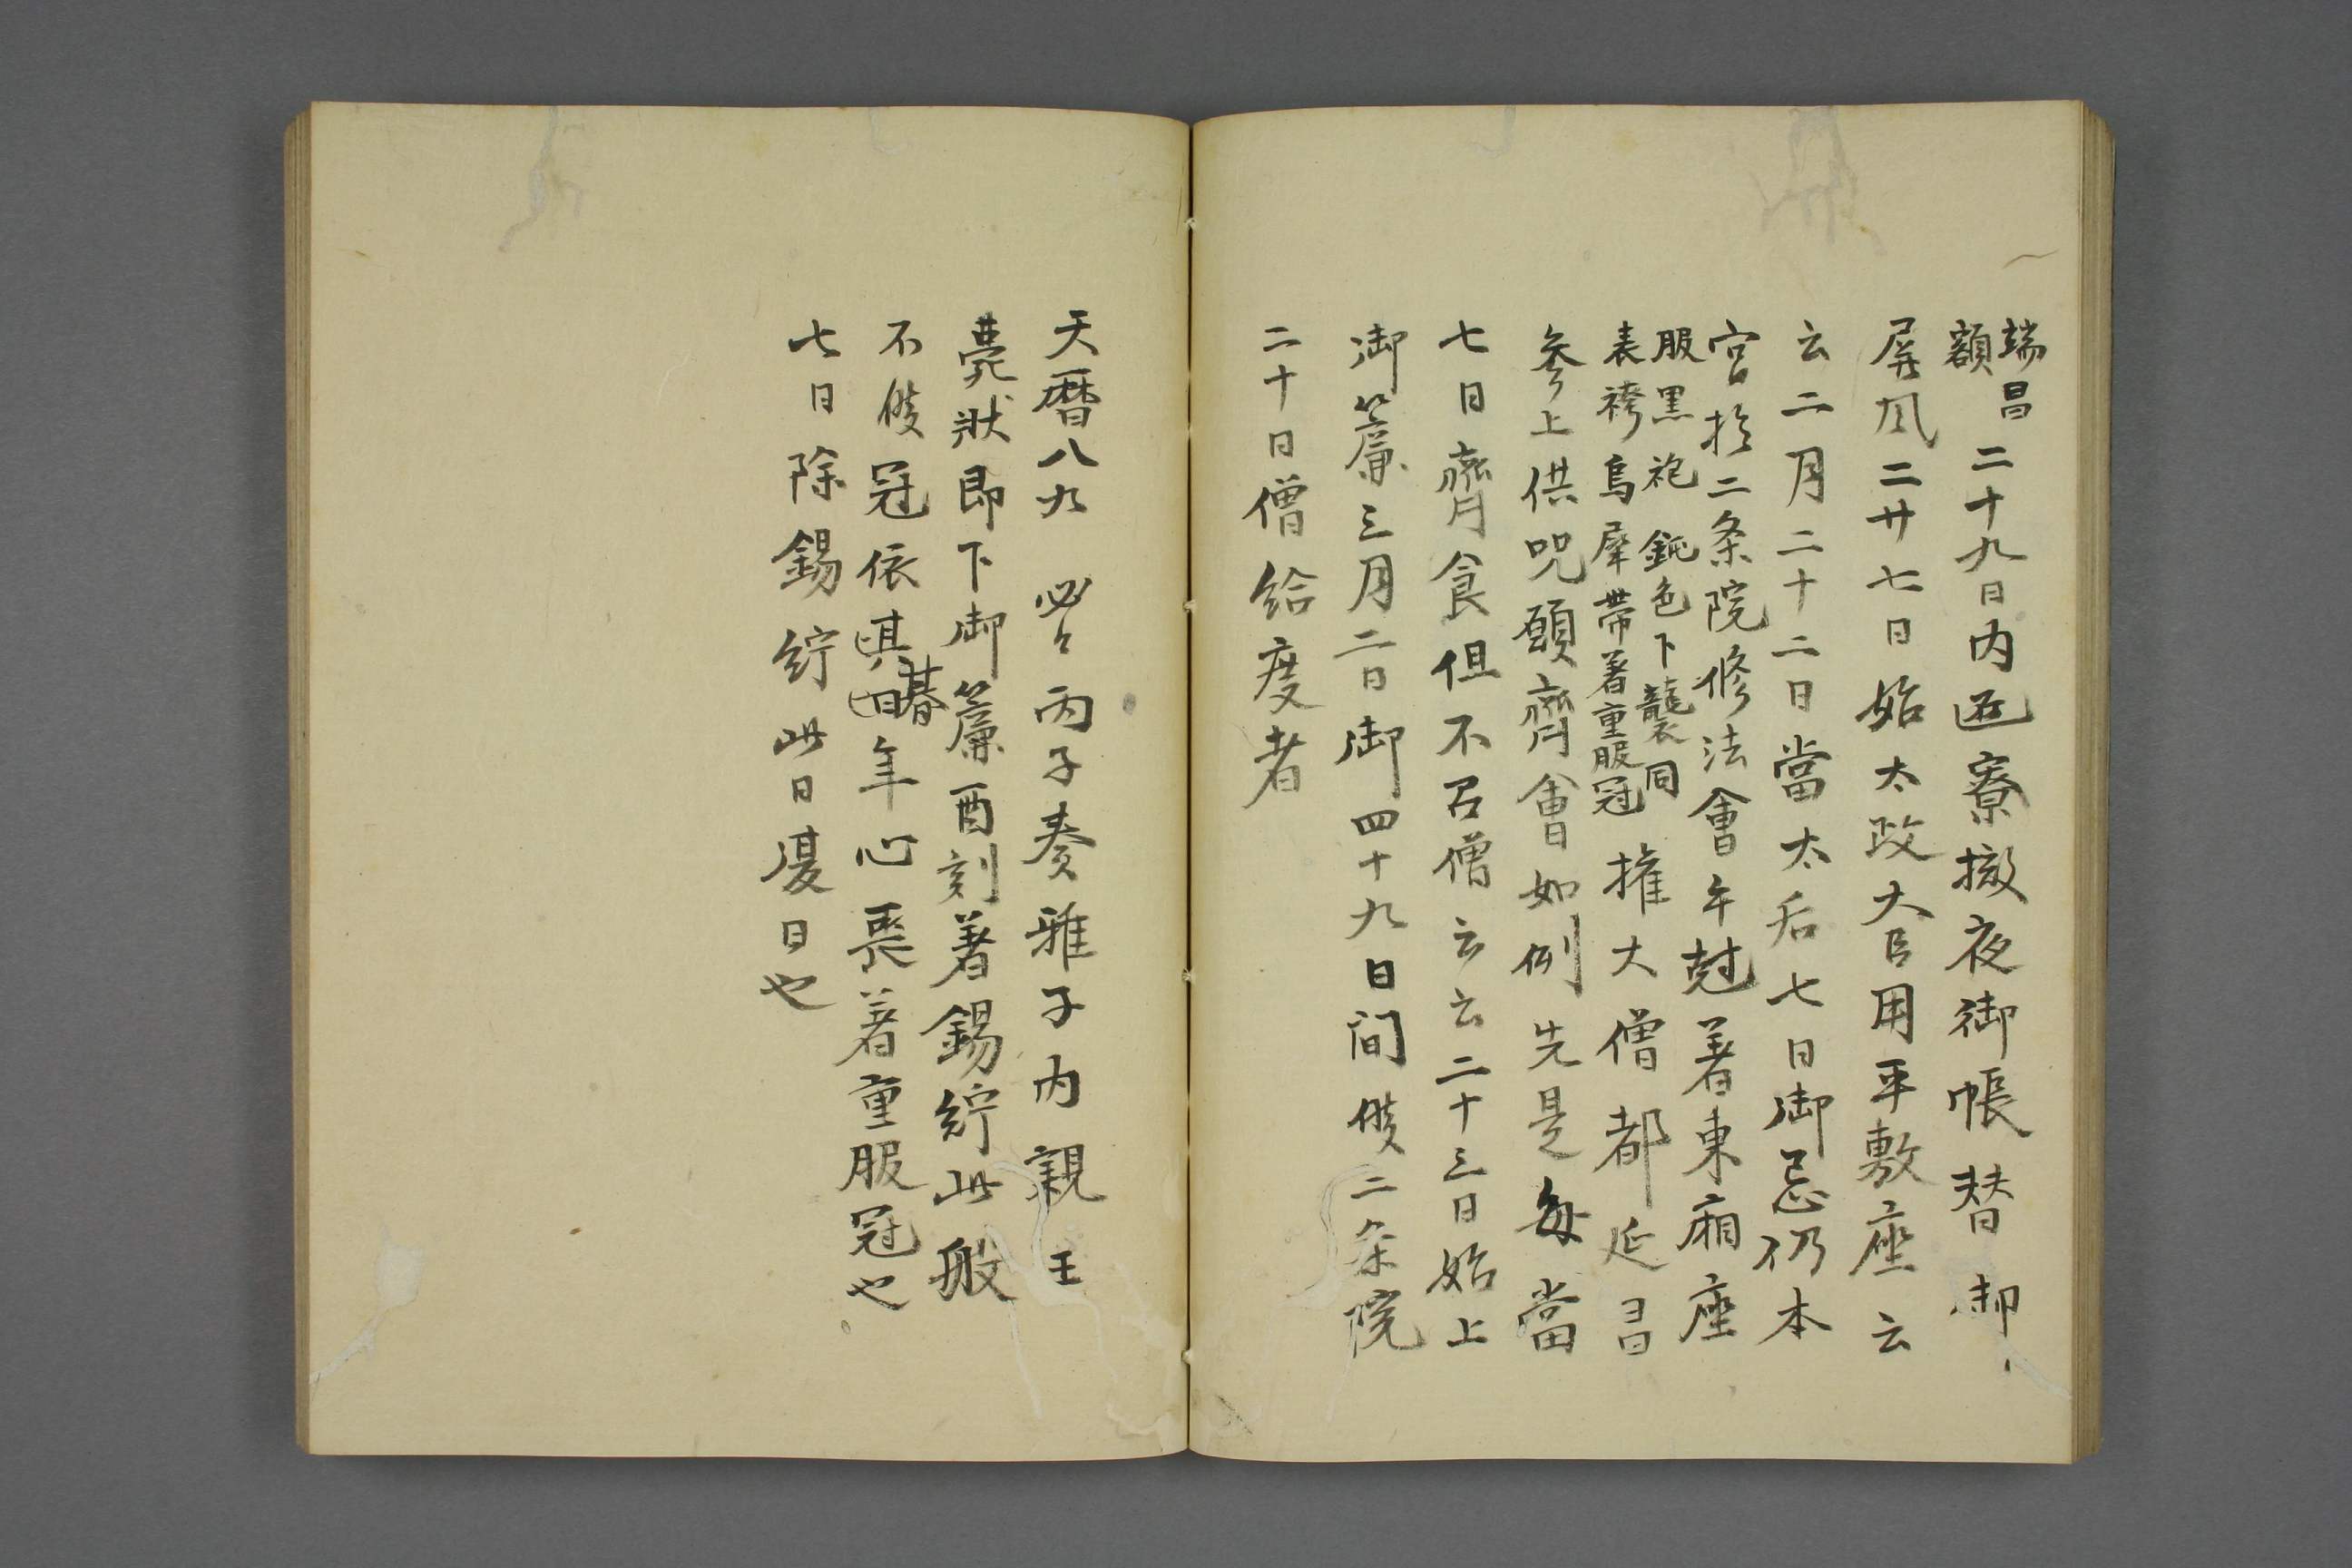 端昌
額
二十九日内匠寮撤夜御帳替御
屏風二廿七日始太政大臣用平敷座云
云二月二十二日當太后七日御忌仍本
宮於二条院修法會午尅著東廂座
服黒袍鈍色下襲同
表袴烏犀帯著重服冠
権大僧都延昌
参上供呪願齊會如例先是毎當
七日齊食但不召僧云云二十三日始上
御簾三月二日御四十九日間候二条院
二十日僧給度者
天暦八九 丙子奏雅子内親王
薨状即下御簾酉刻著錫紵此般
不候冠依其四年心喪著重服冠也
朞
七日除錫紵此日復日也